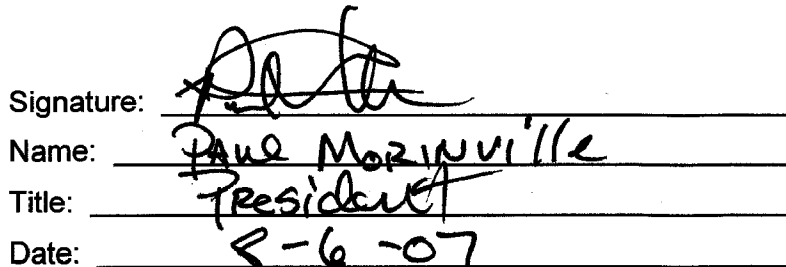 Signature:
Name: Paul Morinville
Title: President
Date: 8-6-07